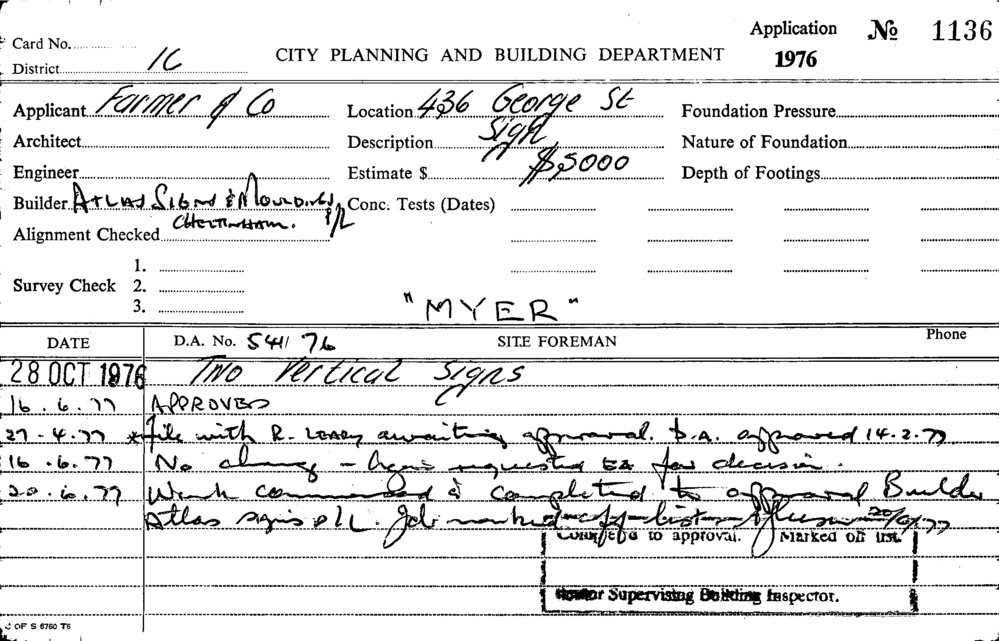 Application No 1136
Card No.
District 1C
CITY PLANNING AND BUILDING DEPARTMENT
1976
Applicant Farmer & Co
Location 436 George St
Foundation Pressure
Architect
Description Sign
Nature of Foundation
Engineer
Estimate $ $5000
Depth of Footings
Builder ATLAS SIGNS & MOULDINGS P/L
CHELTENHAM.
Conc. Tests (Dates)
Alignment Checked
1.
Survey Check 2.
3.
"MYER"
DATE
D.A. No. 541/76
SITE FOREMAN
Phone
28 OCT 1976 Two Vertical Signs
16.6.77 APPROVED
27.4.77 * file with R. LEARY awaiting approval. D.A. approved 14.2.77.
16.6.77 No change - Again requested EA for decision.
20.6.77 Work commenced & completed to approval Builder
Atlas signs P/L. Job marked off list 20/6/77
Completed to approval. Marked off list.
Supervising Building Inspector.
C OF S 6760 T6